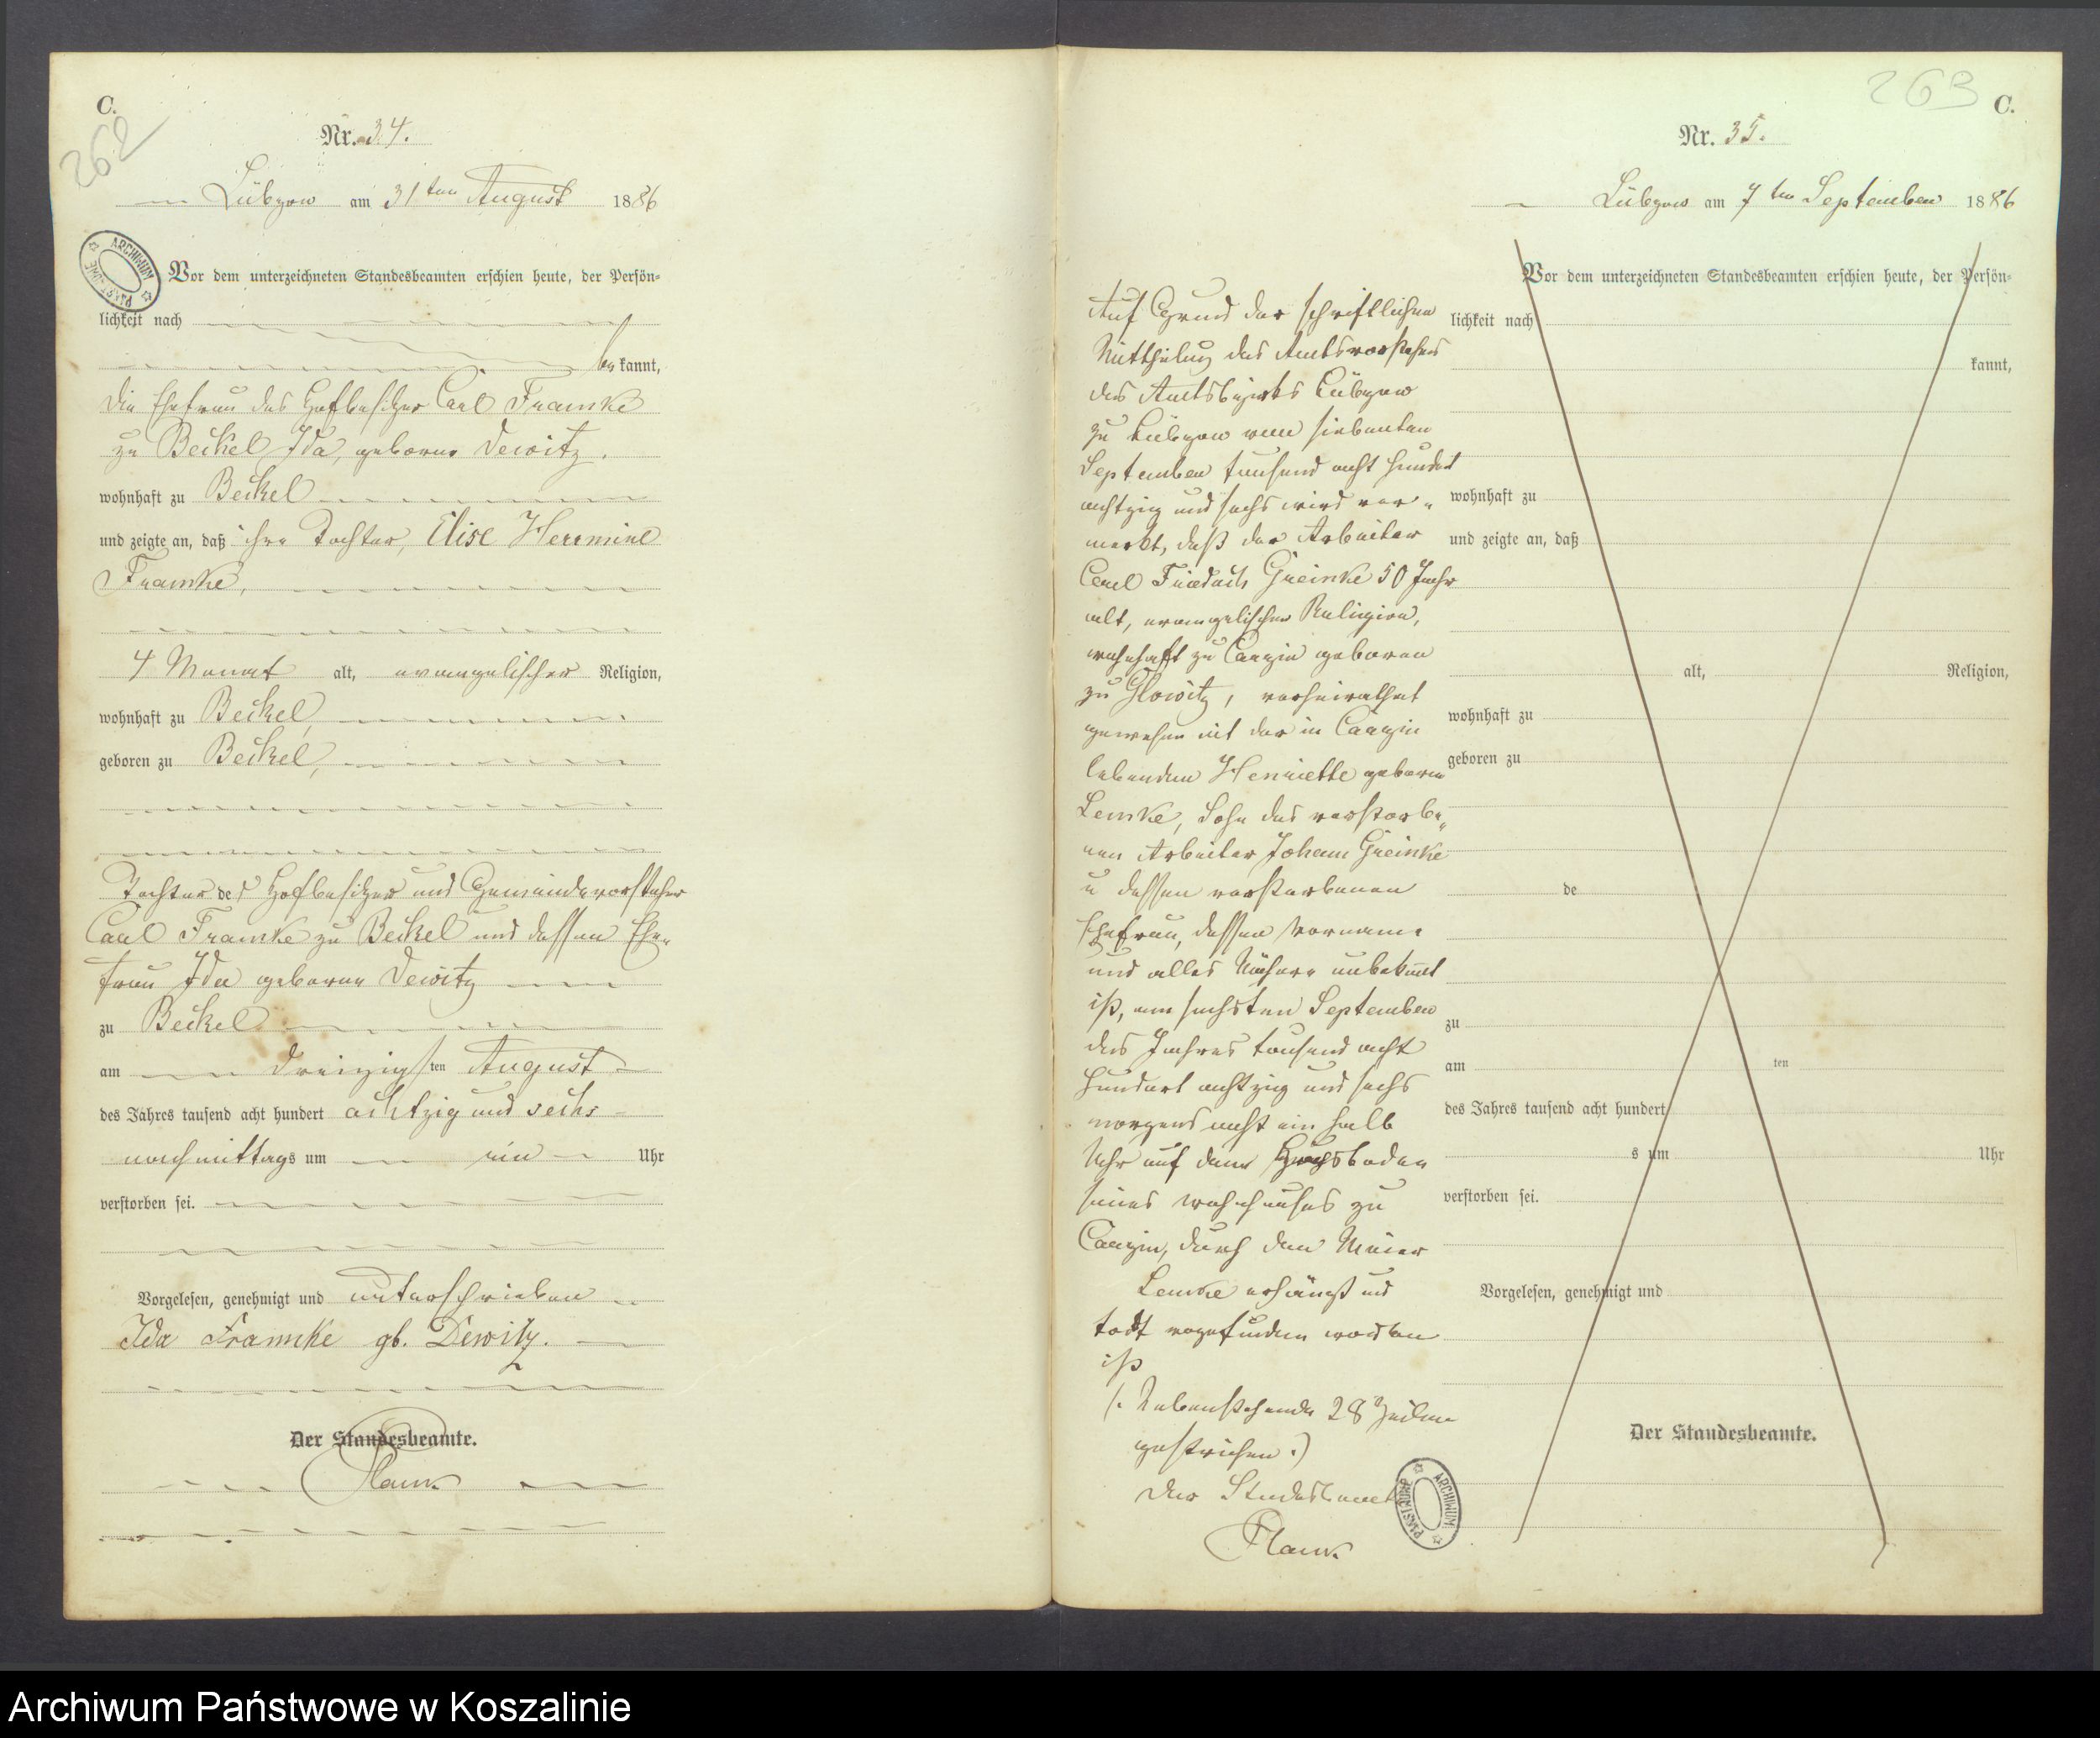 C.
262
Nr. 34.
Lübzow am 31ten August 1886
ARCHIWUM PAŃSTWOWE
Vor dem unterzeichneten Standesbeamten erschien heute, der Persön-
lichkeit nach
bekannt,
die Ehefrau des Hofbesitzer Carl Framke
zu Beckel, Ida, geborne Dewitz.
wohnhaft zu Beckel
und zeigte an, daß ihre Tochter, Elise Herrmine
Framke,
4 Monat alt, evangelischer Religion,
wohnhaft zu Beckel,
geboren zu Beckel,
Tochter des Hofbesitzer und Gemeindevorsteher
Carl Framke zu Beckel und dessen Ehe„
frau Ida geborne Dewitz
zu Beckel
am dreizigsten August
des Jahres tausend acht hundert achtzig und sechs
nachmittags um ein Uhr
verstorben sei.
Vorgelesen, genehmigt und unterschrieben
Ida Framke gb. Dewitz.
Der Standesbeamte.
263
C.
Nr. 35.
Lübzow am 7ten September 1886
Vor dem unterzeichneten Standesbeamten erschien heute, der Persön-
lichkeit nach
kannt,
wohnhaft zu
und zeigte an, daß
alt, Religion,
wohnhaft zu
geboren zu
de
zu
am ten
des Jahres tausend acht hundert
s um Uhr
verstorben sei.
Vorgelesen, genehmigt und
Der Standesbeamte.
Auf Grund der schriftlichen
Mittheilung des Amtsvorstehers
des Amtsbezirks Lübzow
zu Lübzow vom siebenten
September tausend acht hundert
achtzig und sechs wird ver„
merkt, daß der Arbeiter
Carl Friedrich Greinke 50 Jahr
alt, evangelischer Religion,
wohnhaft zu Canzin geboren
zu Glowitz, verheirathet
gewesen mit der in Canzin
lebenden Henriette geborne
Lemke, Sohn des verstorbe„
nen Arbeiter Johann Greinke
u dessen verstorbenen
Ehefrau, dessen Vorname
und alles Nähere unbekannt
ist, am sechsten September
des Jahres tausend acht
hundert achtzig und sechs
morgens acht ein halb
Uhr auf dem
seines Wohnhauses zu
Canzin, durch den
Lemke erhängt und
todt vorgefunden worden
ist
(. Nebenstehende 28 Zeilen
gestrichen .)
Der Standesbeamte
ARCHIWUM PAŃSTWOWE
Archiwum Państwowe w Koszalinie